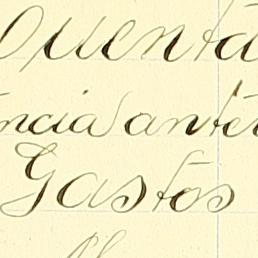 Cuenta
ncia anter
Gastos